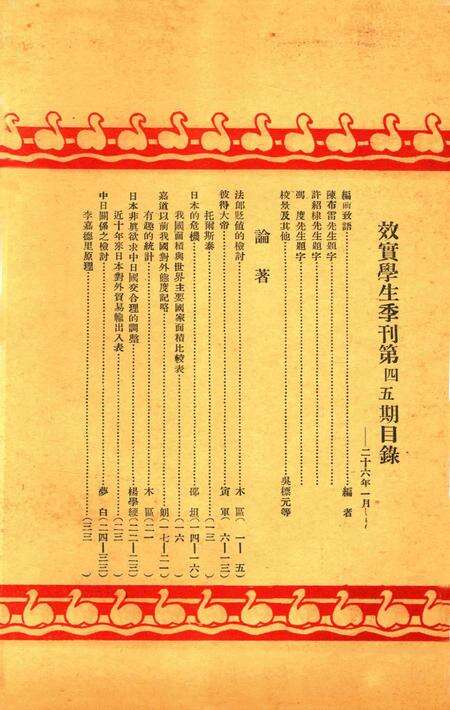 效實學生季刊第四五期目錄
——二十六年一月
編前致語……編者
陳布雷先生題字
許紹棣先生題字
度先生題字
校景及其他……吳標元等
論著
法郎貶値的檢討……木區(一—五)
彼得大帝……寅軍(六—一三)
托爾斯泰……(一三)
日本的危機……邵坦(一四—一六)
我國面積與世界主要國家面積比較表……(一六)
嘉道以前我國對外態度記略……(一七—二一)
有趣的統計……木區(二一)
日本非眞欲求中日國交合理的調整……楊學經(二二—二三)
近十年來日本對外貿易輸出入表……(二三)
中日關係之檢討……夢白(二四—三三)
李嘉德里原理……(三三)